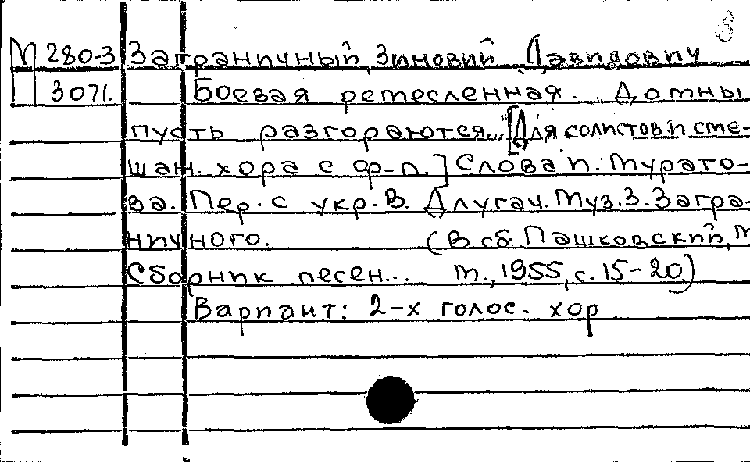 З
М 280-3 Заграничный, Зиновий Давидович
П 3071. Боевая ремесленная. Домны
пусть разгораются... [Для солистов и сме-
шан. хора с ф-п.] Слова И. Мурато-
ва. Пер. с укр. В. Длугач. Муз. З. Загра-
ничного. (В сб. Пашковский, М
Сборник песен... М., 1955, с. 15-20)
Вариант: 2-х голос. хор